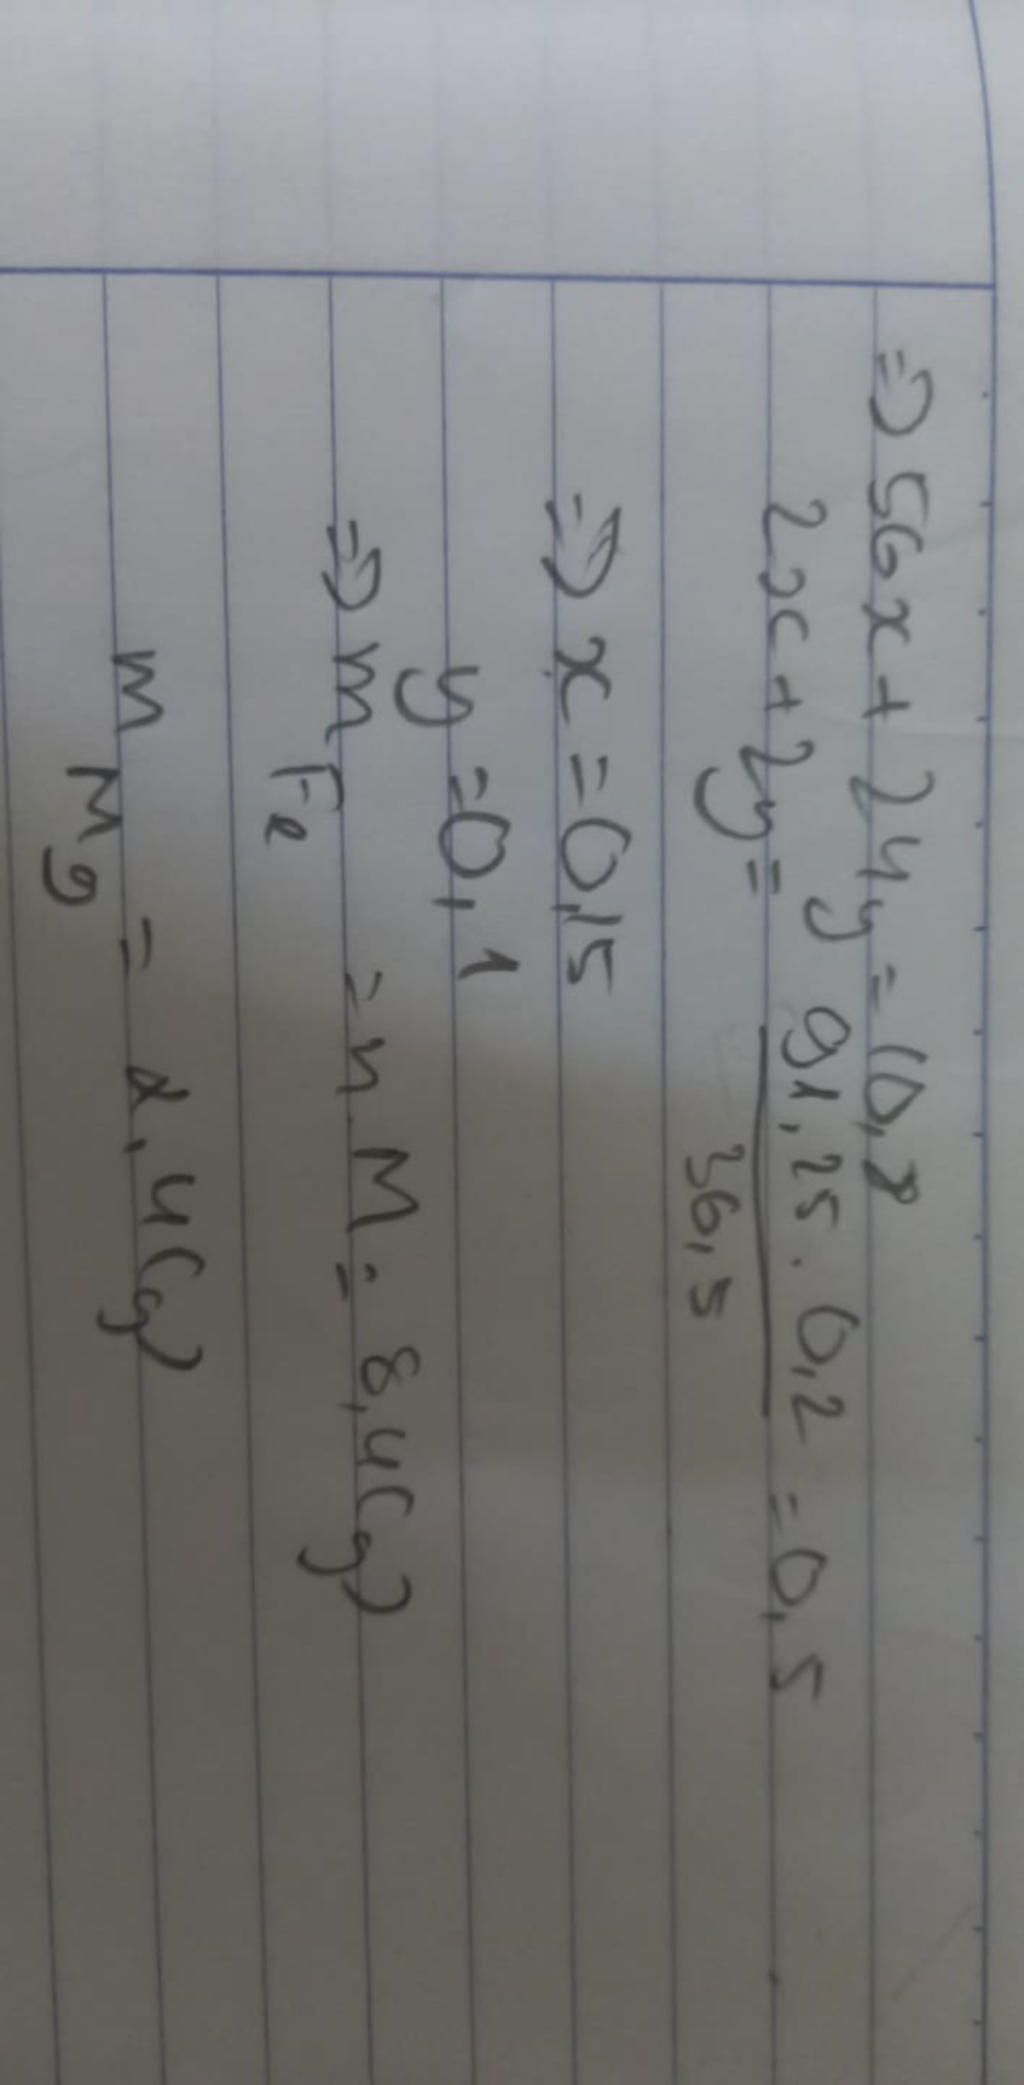 => 56x + 24y = 10,8
2x + 2y = 91,25 . 0,2 / 36,5 = 0,5
=> x = 0,15
y = 0,1
=> m Fe = n . M = 8,4 (g)
m Mg = 2,4 (g)